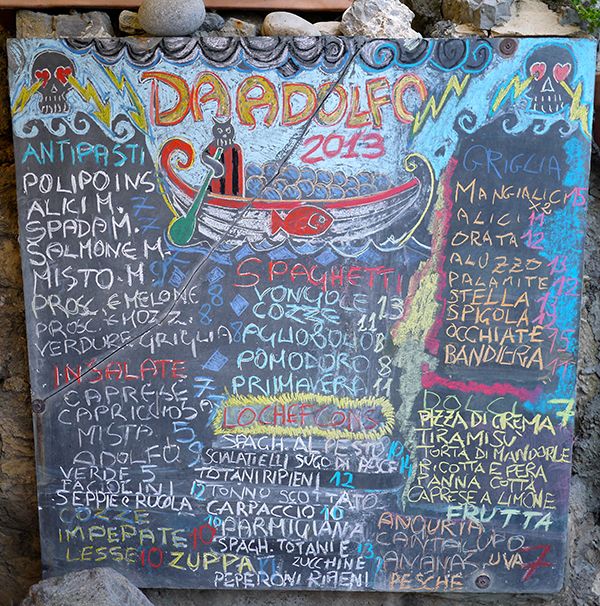 DA ADOLFO
2013
ANTIPASTI
POLIPO INS
ALICI M. 7
SPADA M. 7
SALMONE M.
MISTO M
PROSC. E MELONE 8
PROSC. E MOZZ. 8
VERDURE GRIGLIA 8
INSALATE
CAPRESE 7
CAPRICCIOSA 7
MISTA 5
ADOLFO 9
VERDE 5
FAGIOLINI 5
SEPPIE E RUCOLA 12
COZZE
IMPEPATE 10
LESSE 10 ZUPPA
SPAGHETTI
VONGOLE 13
COZZE 11
AGLIO OLIO 8
POMODORO 8
PRIMAVERA 11
LO CHEF CONS
SPAGH. AL PESTO 10
SCIALATIELLI SUGO DI PESCE 14
TOTANI RIPIENI 12
TONNO SCOTTATO
CARPACCIO 16
PARMIGIANA
SPAGH. TOTANI E 13
ZUCCHINE
PEPERONI RIPIENI
GRIGLIA
MANGIALICI 15
ALICI 11
ORATA 12
ALUZZO 13
PALAMITE 12
STELLA 11
SPIGOLA
OCCHIATE 15
BANDIERA
DOLCI 7
PIZZA DI CREMA
TIRAMISU
TORTA DI MANDORLE
RICOTTA E PERA
PANNA COTTA
CAPRESE A LIMONE
FRUTTA
ANGURIA
CANTALUPO
ANANAS UVA 7
PESCHE